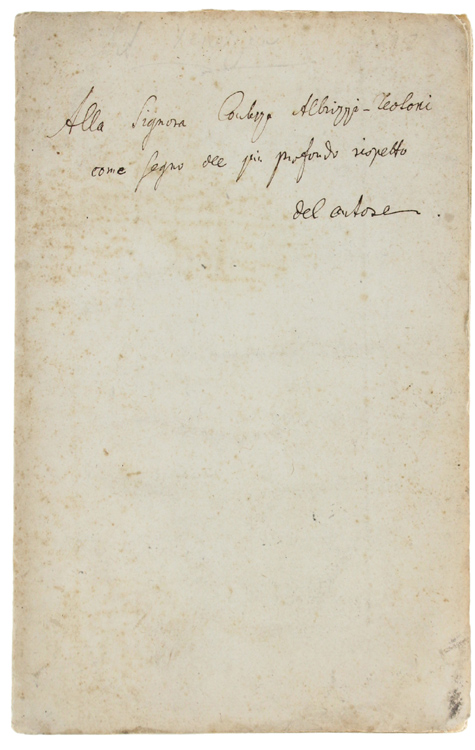 Alla Signora Contessa Albrizzi-Teotoni
come segno del più profondo rispetto
del autore.